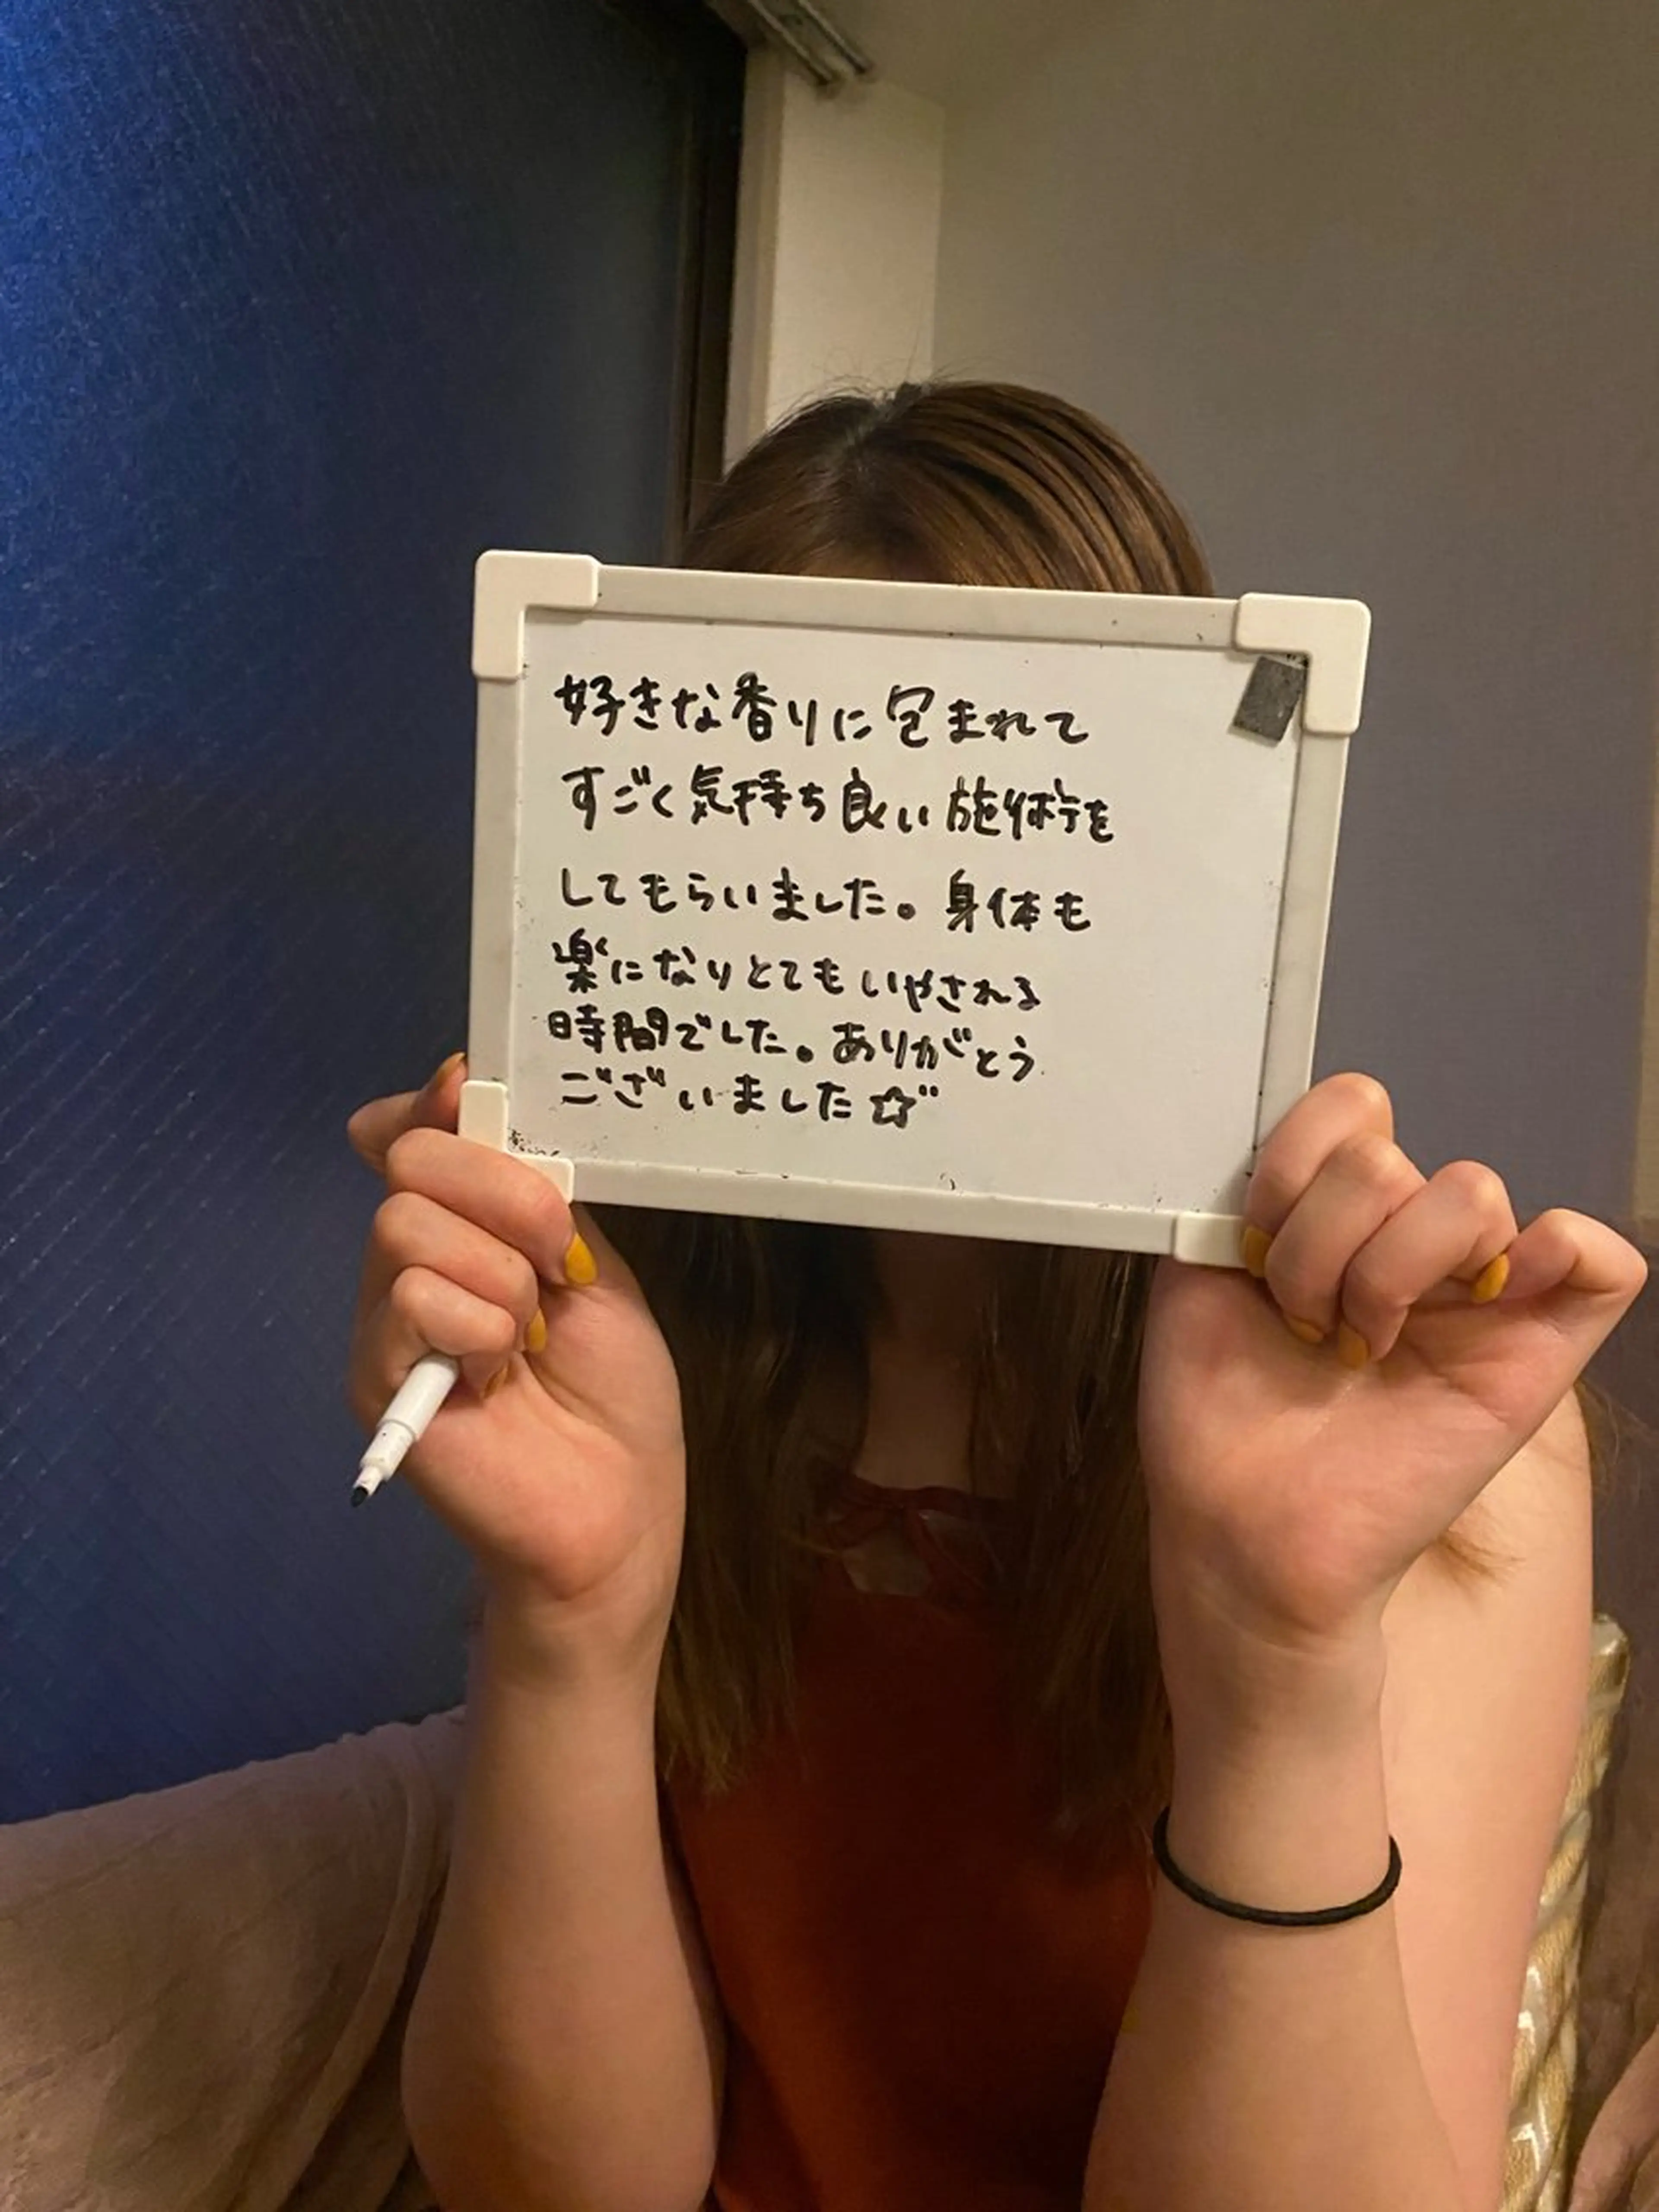 好きな香りに包まれて
すごく気持ち良い施術を
してもらいました。身体も
楽になりとてもいやされる
時間でした。ありがとう
ございました☆"